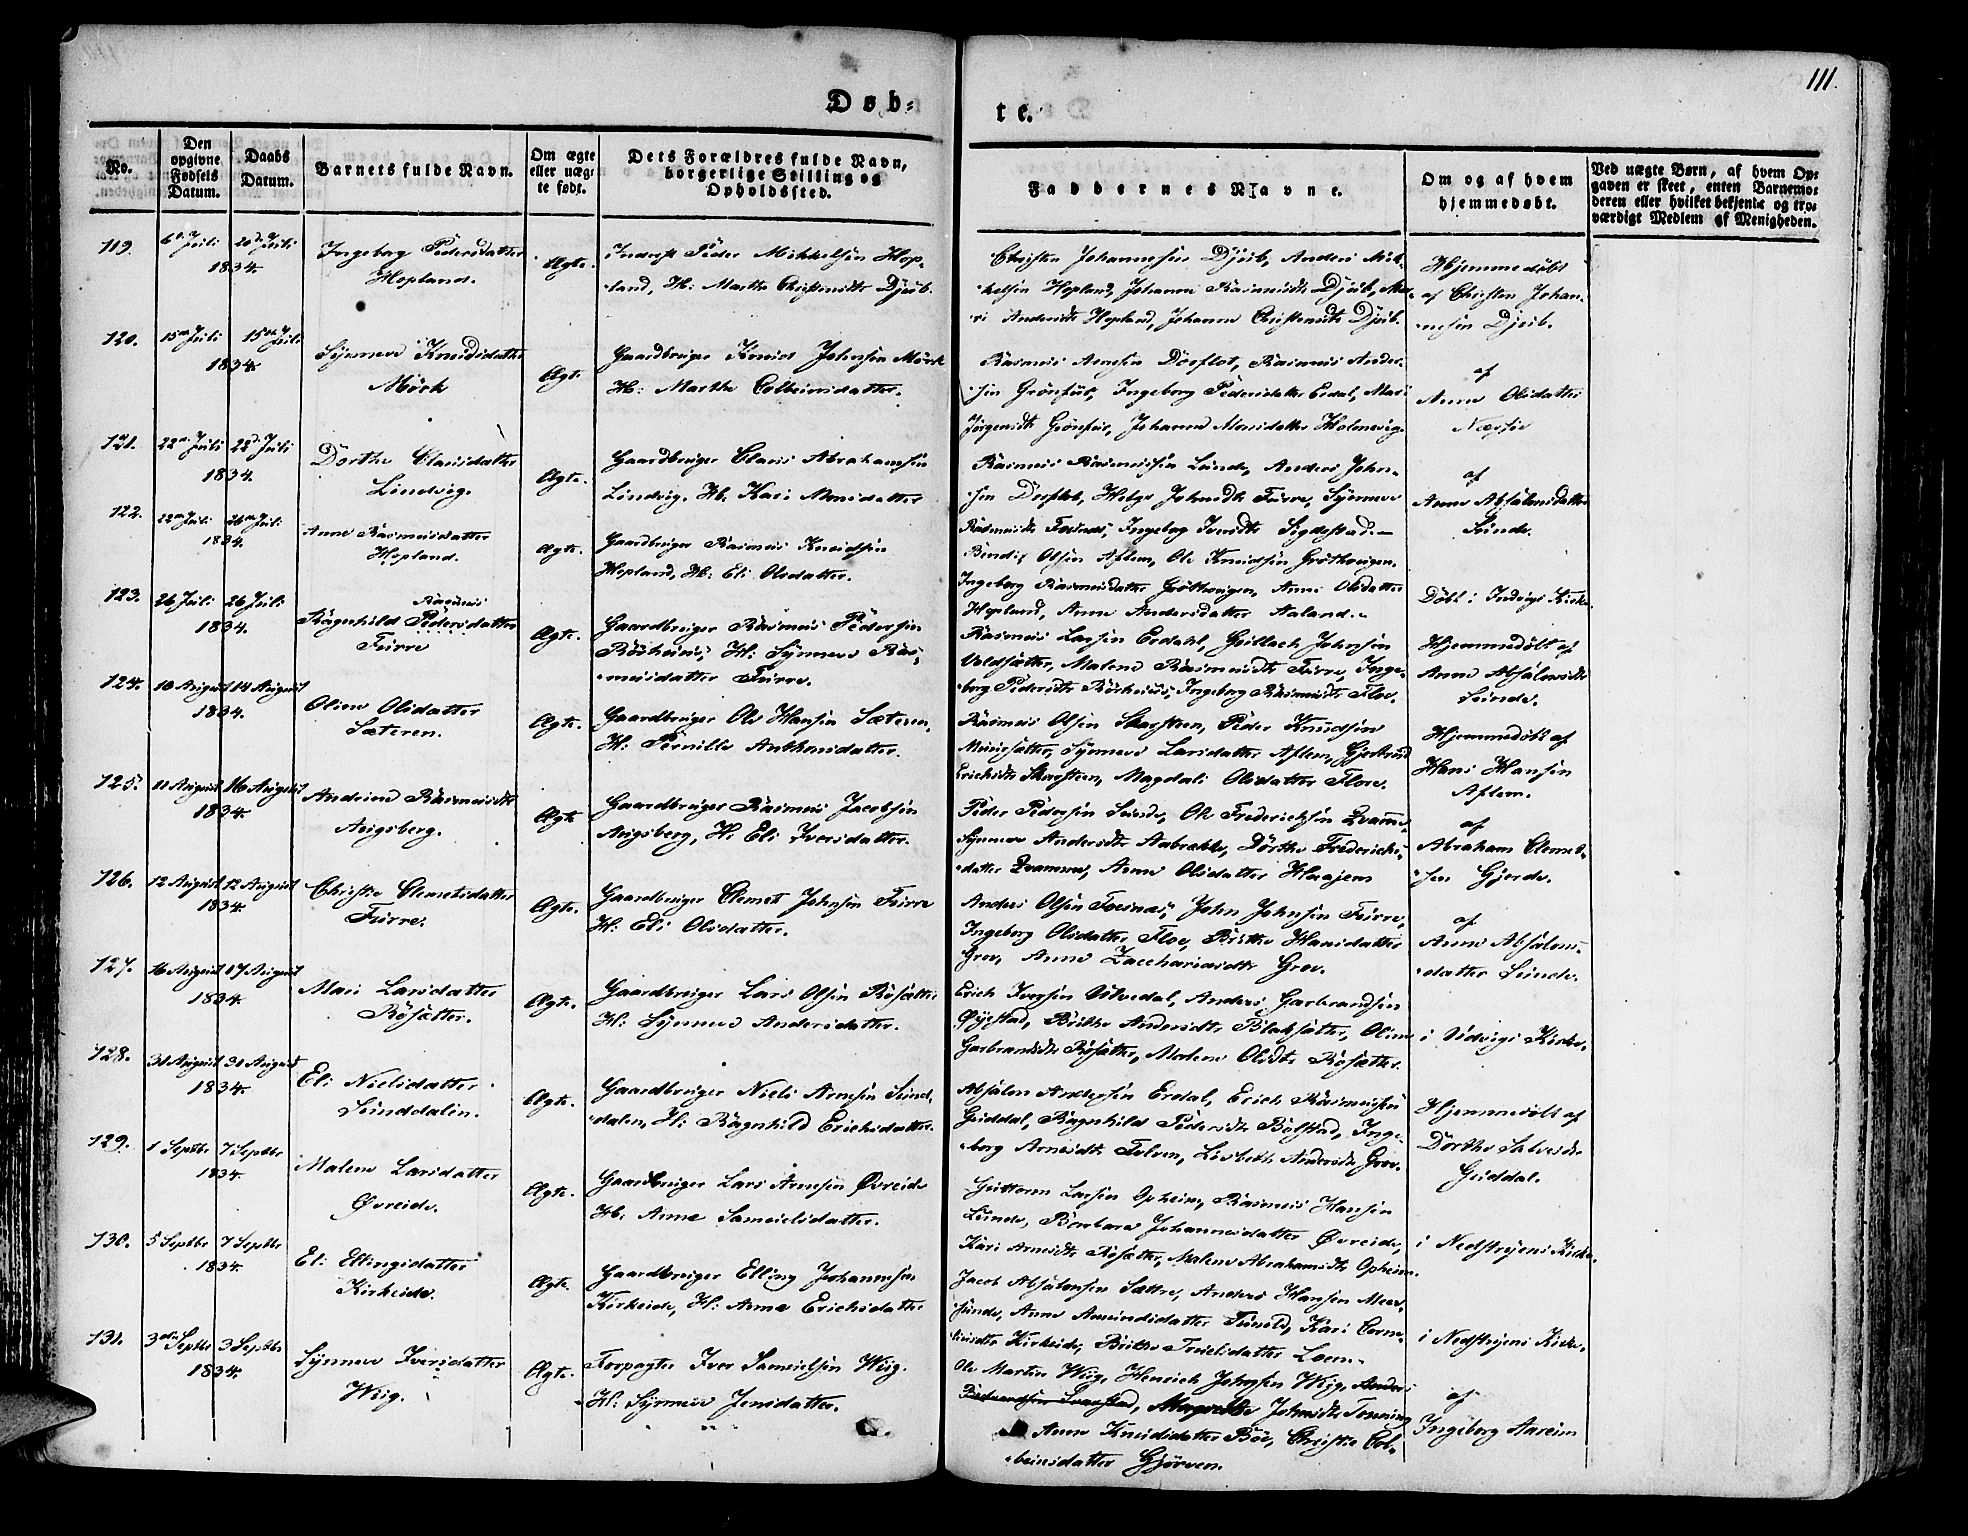 111.
Døb-
te.
No.
Den opgivne Fødsels Datum.
Daabs Datum.
Barnets fulde Navn.
Om ægte eller uægte født.
Dets Forældres fulde Navn, borgerlige Stilling og Opholdssted.
Faddernes Navne.
Om og af hvem hjemmedøbt.
Ved uægte Børn, af hvem Opgaven er skeet, enten Barnemoderen eller hvilket bekjendt og troværdigt Medlem af Menigheden.
119.
6te Juli 20de Juli
1834.
Ingeborg Pedersdatter
Hopland.
Ægte.
Inderst Peder Mikkelsen Hop-
land, H: Marthe Christensdtr Djub.
Christen Johannesen Djub, Anders Mik-
kelsen Hopland, Johanne Rasmusdtr Djub, Ma-
ri Andersdtr Hopland, Johanne Christensdtr Djub.
Hjemmedøbt
af Christen Johan-
nesen Djub.
120.
15de Juli 15de Juli
1834.
Synneve Knudsdatter
Mörk
Ægte.
Gaardbruger Knud Johnsen Mörk
H: Marthe Colbeinsdatter.
Rasmus Arnesen Dosflot, Rasmus Ander-
sen Grönfur, Ingeborg Pedersdatter Erdal, Mari
Jörgensdtr Grönfur, Johanne Monsdatter Holmevig.
af
Anne Olsdatter
121.
22de Juli 22de Juli
1834.
Dorthe Clausdatter
Lindvig.
Ægte.
Gaardbruger Claus Abrahamsen
Lindvig, H: Kari Monsdatter
Rasmus Rasmussen Lunde, Anders John-
sen Dosflot, Helge Johnsdtr Furre, Synneve
Rasmusdtr Foesnæs, Ingeborg Iversdtr Sigdestad.
af
Anne Absalonsdatter
Sunde.
122.
22de Juli 26de Juli
1834.
Anne Rasmusdatter
Hopland.
Ægte.
Gaardbruger Rasmus Knudsen
Hopland, H: Eli Olsdatter.
Bendix Olsen Aflem, Ole Knudsen Gröthougen.
Ingeborg Rasmusdatter Gröthougen, Anne Olsdatter
Hopland, Anne Andersdatter Aaland.
Döbt i Indvigs Kirke
123.
26 Juli 26 Juli
1834.
Rasmus
Ragnhild Pedersdatter
Furre
Ægte.
Gaardbruger Rasmus Pedersen
Rösheims, H: Synneve Ras-
musdatter Furre.
Rasmus Larsen Erdahl, Gullack Johnsen
Voldsætter, Malene Rasmusdtr Furre, Inge-
borg Pedersdtr Rösheims, Ingeborg Rasmusdtr Floe.
Hjemmedøbt af
Anne Absalonsdtr
Sunde.
124.
10 August 14 August
1834.
Oline Olsdatter
Sæteren.
Ægte.
Gaardbruger Ole Hansen Sæteren,
H: Pernille Anthonsdatter.
Rasmus Olsen Skarsteen, Peder Knudsen
Muusætter, Synneve Larsdatter Aflem, Gjertrud
Erichsdtr Skarsteen, Magdali Olsdatter Flore.
Hjemmedøbt af
Hans Hansen
Aflem.
125.
11 August 16 August
1834.
Andrine Rasmusdtr
Avigsberg.
Ægte
Gaardbruger Rasmus Jacobsen
Avigsberg, H: Eli Iversdatter.
Peder Pedersen Sunde, Ole Frederichsen Qvamme,
Synneve Andersdtr Aabrekke, Dorthe Frederichs-
datter Qvamme, Anne Olsdatter Haajem
af
Abraham Clemet-
sen Gjerde.
126.
12 August 12 August
1834.
Christie Clemetsdatter
Furre.
Ægte.
Gaardbruger Clemet Johnsen Furre
H: Eli Olsdatter.
Anders Olsen Foesnæs, John Johnsen Furre,
Ingeborg Olsdatter Floe, Brithe Hansdatter
Grov, Anne Zacchariasdtr Grov.
af
Anne Absalons-
datter Sunde.
127.
16 August 17 August
1834.
Mari Larsdatter
Rösætter.
Ægte.
Gaardbruger Lars Olsen Rösætter
H: Synneve Andersdatter.
Erich Iversen Ulvedal, Anders Garbrandsen
Øyestad, Brithe Andersdtr Blaksætter, Oline
Garbrandsdtr Rösætter, Malene Olsdtr Rösætter.
i Udvigs Kirke.
128.
31 August 31 August
1834.
Eli Nielsdatter
Sunddalen.
Ægte.
Gaardbruger Niels Arnesen Sund-
dalen, H: Ragnhild Erichsdatter.
Absalon Andersen Erdal, Erich Rasmussen
Guddal, Ragnhild Pedersdtr Bolstad, Inge-
borg Arnesdtr Folven, Lisbeth Andersdtr Grov.
Hjemmedøbt af
Dorthe Salvesdtr
Guddal.
129.
1 Septbr 7 Septbr
1834.
Malene Larsdatter
Øvreide.
Ægte.
Gaardbruger Lars Arnesen Øvreide
H: Anne Samuelsdatter.
Guttorm Larsen Opheim, Rasmus Hansen
Lunde, Barbara Johannesdatter Øvreide,
Kari Arnesdtr Rösætter, Malene Abrahamsdtr Opheim.
i Nedstryens Kirke.
130.
5 Septbr 7 Septbr
1834.
Eli Ellingsdatter
Kirkeide.
Ægte.
Gaardbruger Elling Johannesen
Kirkeide, H: Anne Erichsdatter
Jacob Absalonsen Sættre, Anders Hansen Meer-
sunde, Anne Amundsdatter Tunold, Kari Corne-
liusdtr Kirkeide, Brithe Troelsdatter Loen.
i Nedstryens Kirke.
131.
3die Septbr 3 Septbr
1834.
Synneve Iversdatter
Wiig.
Ægte.
Forpagter Iver Samuelsen Wiig.
H: Synneve Jensdatter.
Ole Martin Wiig, Henrich Johnsen Wiig, Anders
Johnsdtr Tenning
Anne Knudsdatter Böe, Christie Col-
beinsdatter Gjörven.
af
Ingeborg Aareim